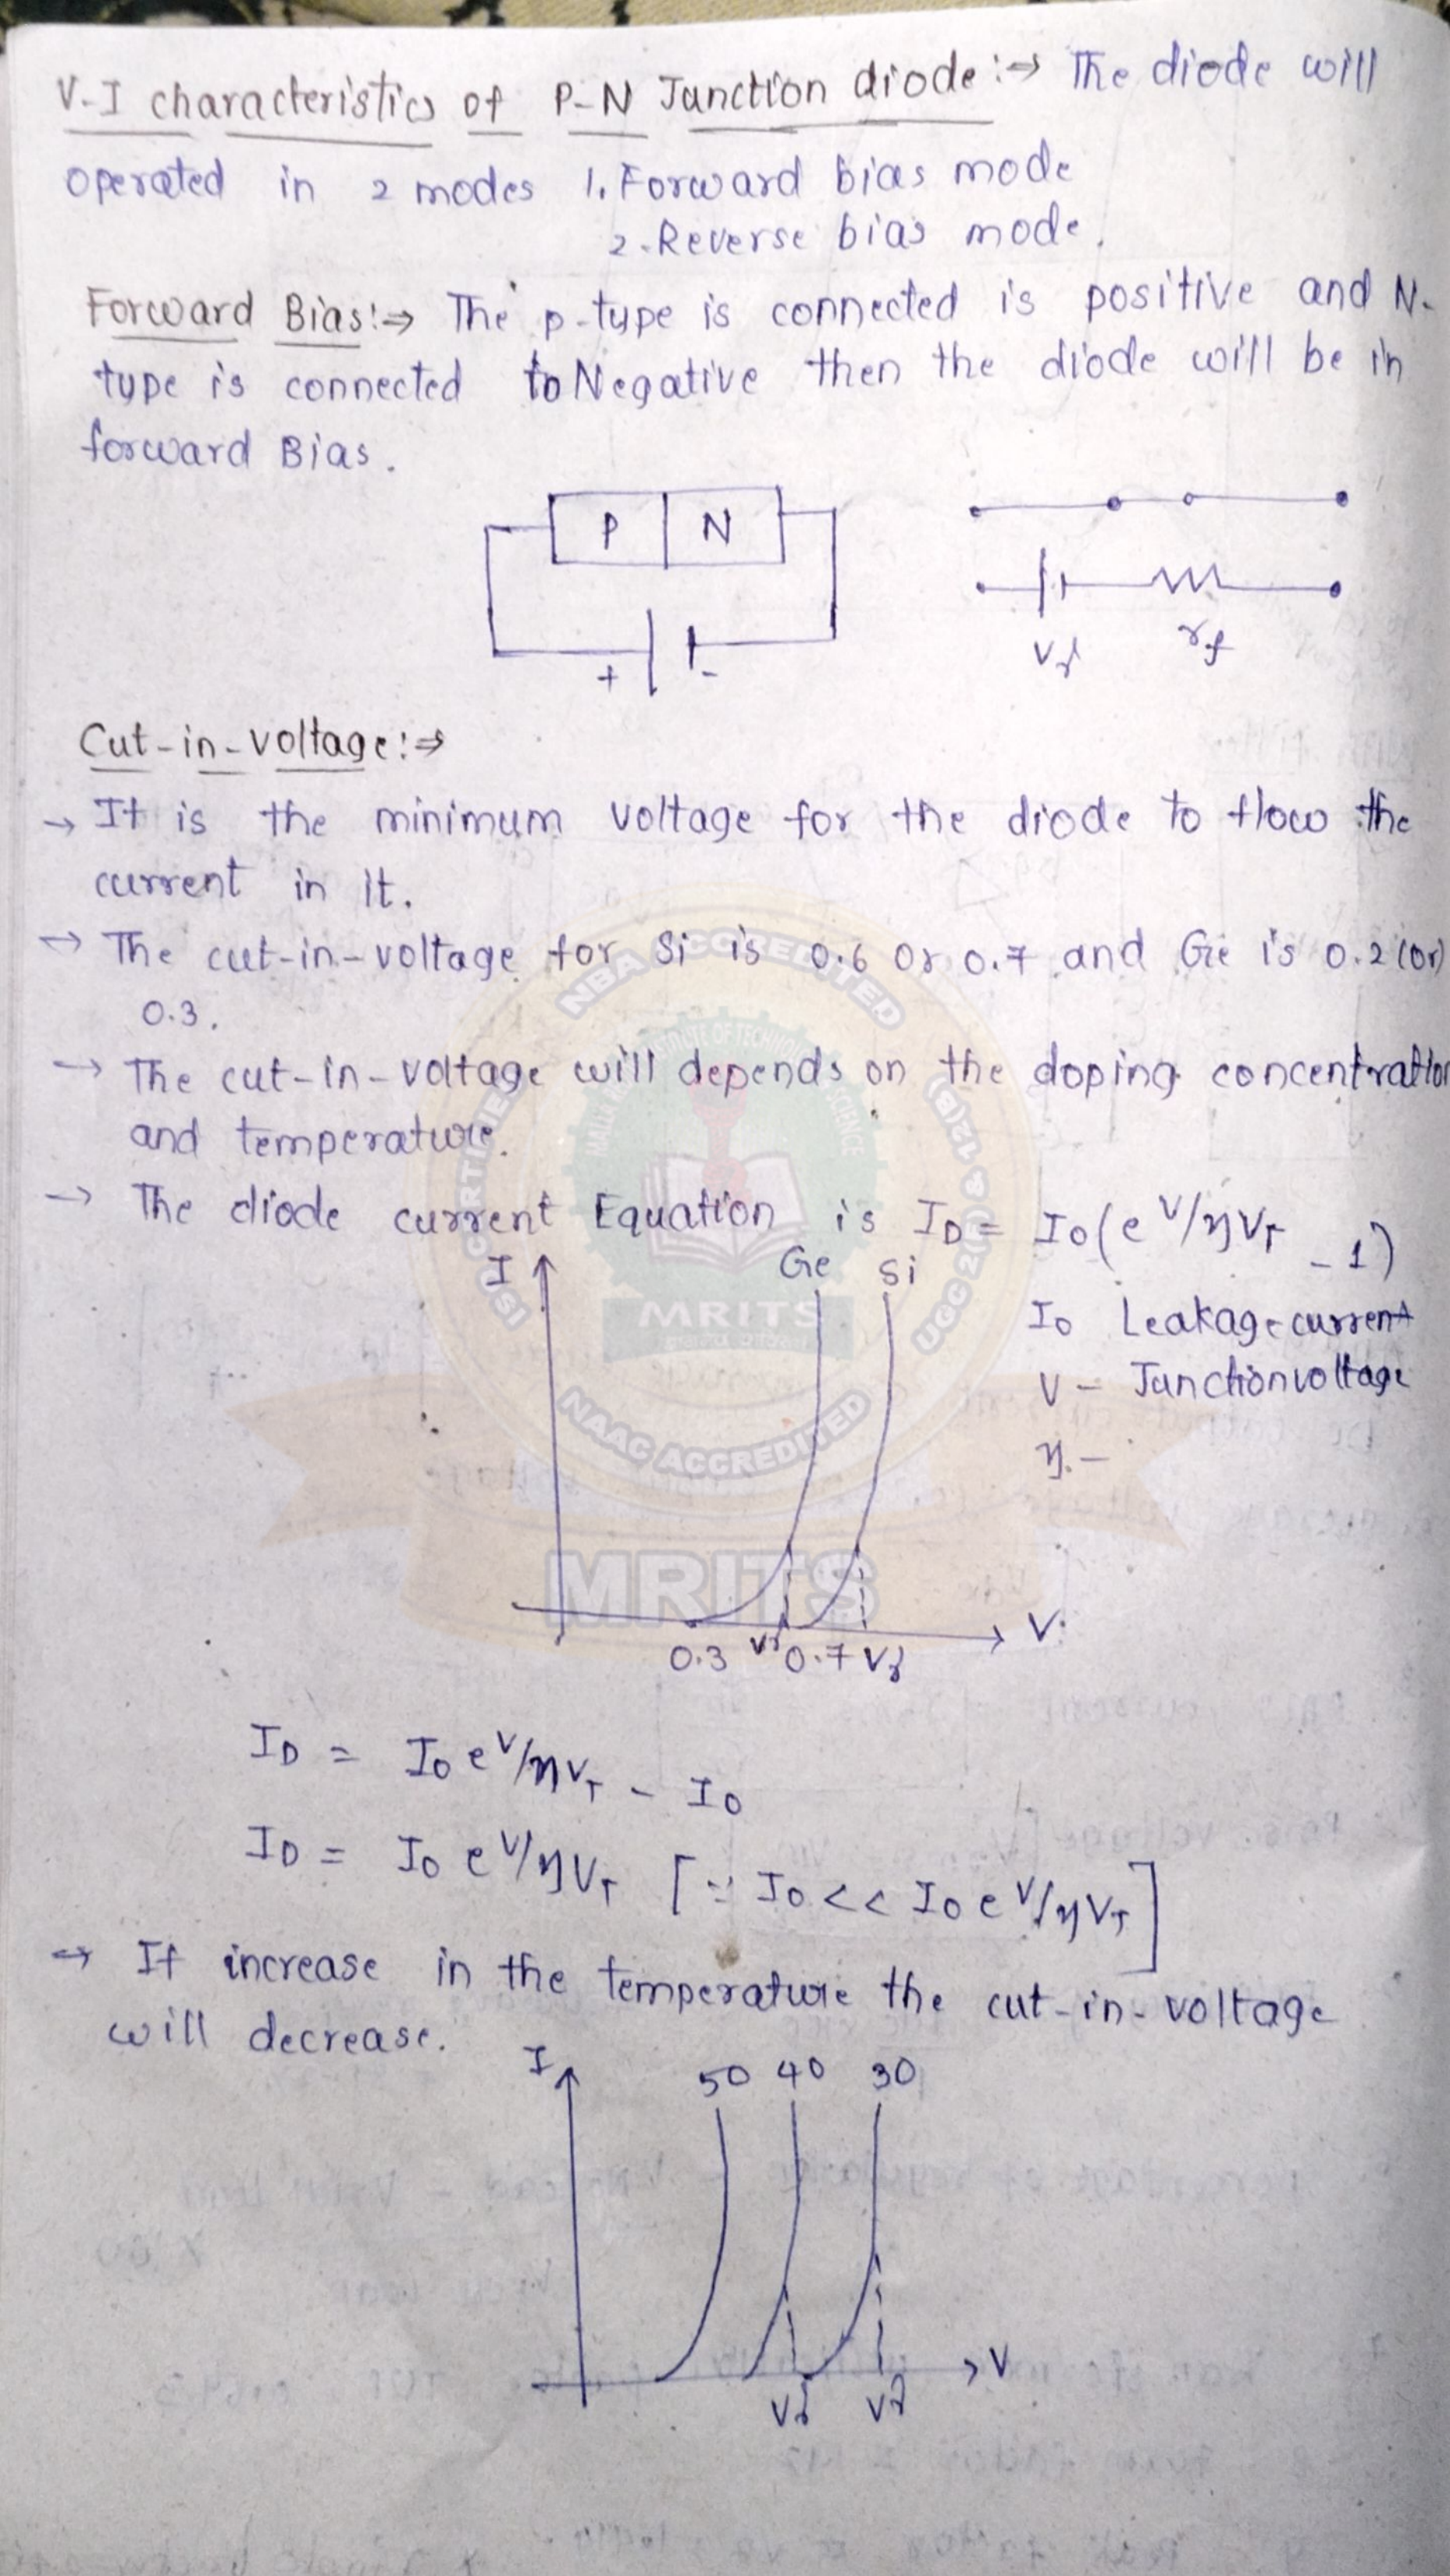 V-I characteristics of P-N Junction diode:⇒ The diode will
operated in 2 modes 1. Forward bias mode
2. Reverse bias mode.
Forward Bias:⇒ The p-type is connected is positive and N-
type is connected to Negative then the diode will be in
forward Bias.
P N
+ -
Vγ rf
Cut-in-voltage:⇒
→ It is the minimum voltage for the diode to flow the
current in it.
→ The cut-in-voltage for Si is 0.6 or 0.7 and Ge is 0.2 (or)
0.3.
→ The cut-in-voltage will depends on the doping concentration
and temperature.
→ The diode current Equation is ID = I0(e^V/ηVT - 1)
I Ge Si
I0 Leakage current
V - Junction voltage
η. -
V
0.3 Vγ 0.7 Vγ
ID = I0 e^V/ηVT - I0
ID = I0 e^V/ηVT [∵ I0 << I0 e^V/ηVT]
→ If increase in the temperature the cut-in-voltage
will decrease.
I 50 40 30
V
Vγ Vγ
NBA ACCREDITED
UGC 2(f) & 12(B)
NAAC ACCREDITED
MRITS
MRITS